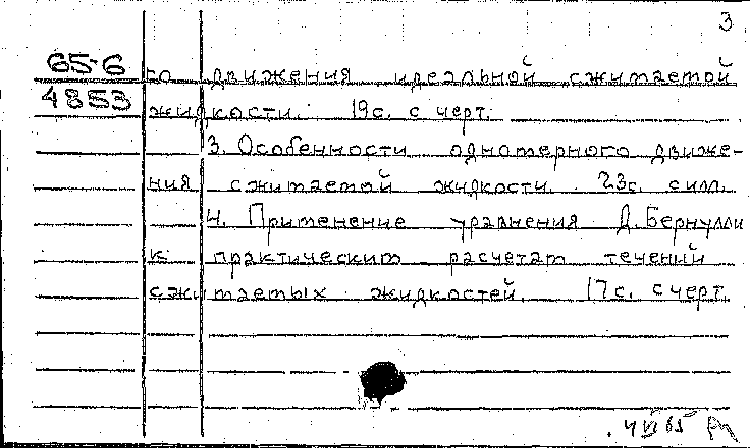 3
65-6
4853
го движения идеальной сжимаемой
жидкости. 19с. с черт.
3. Особенности одномерного движе-
ния сжимаемой жидкости. 23с. с илл.
4. Применение уравнения Д. Бернулли
к практическим расчетам течений
сжимаемых жидкостей. 17с. с черт.
4 VI 65